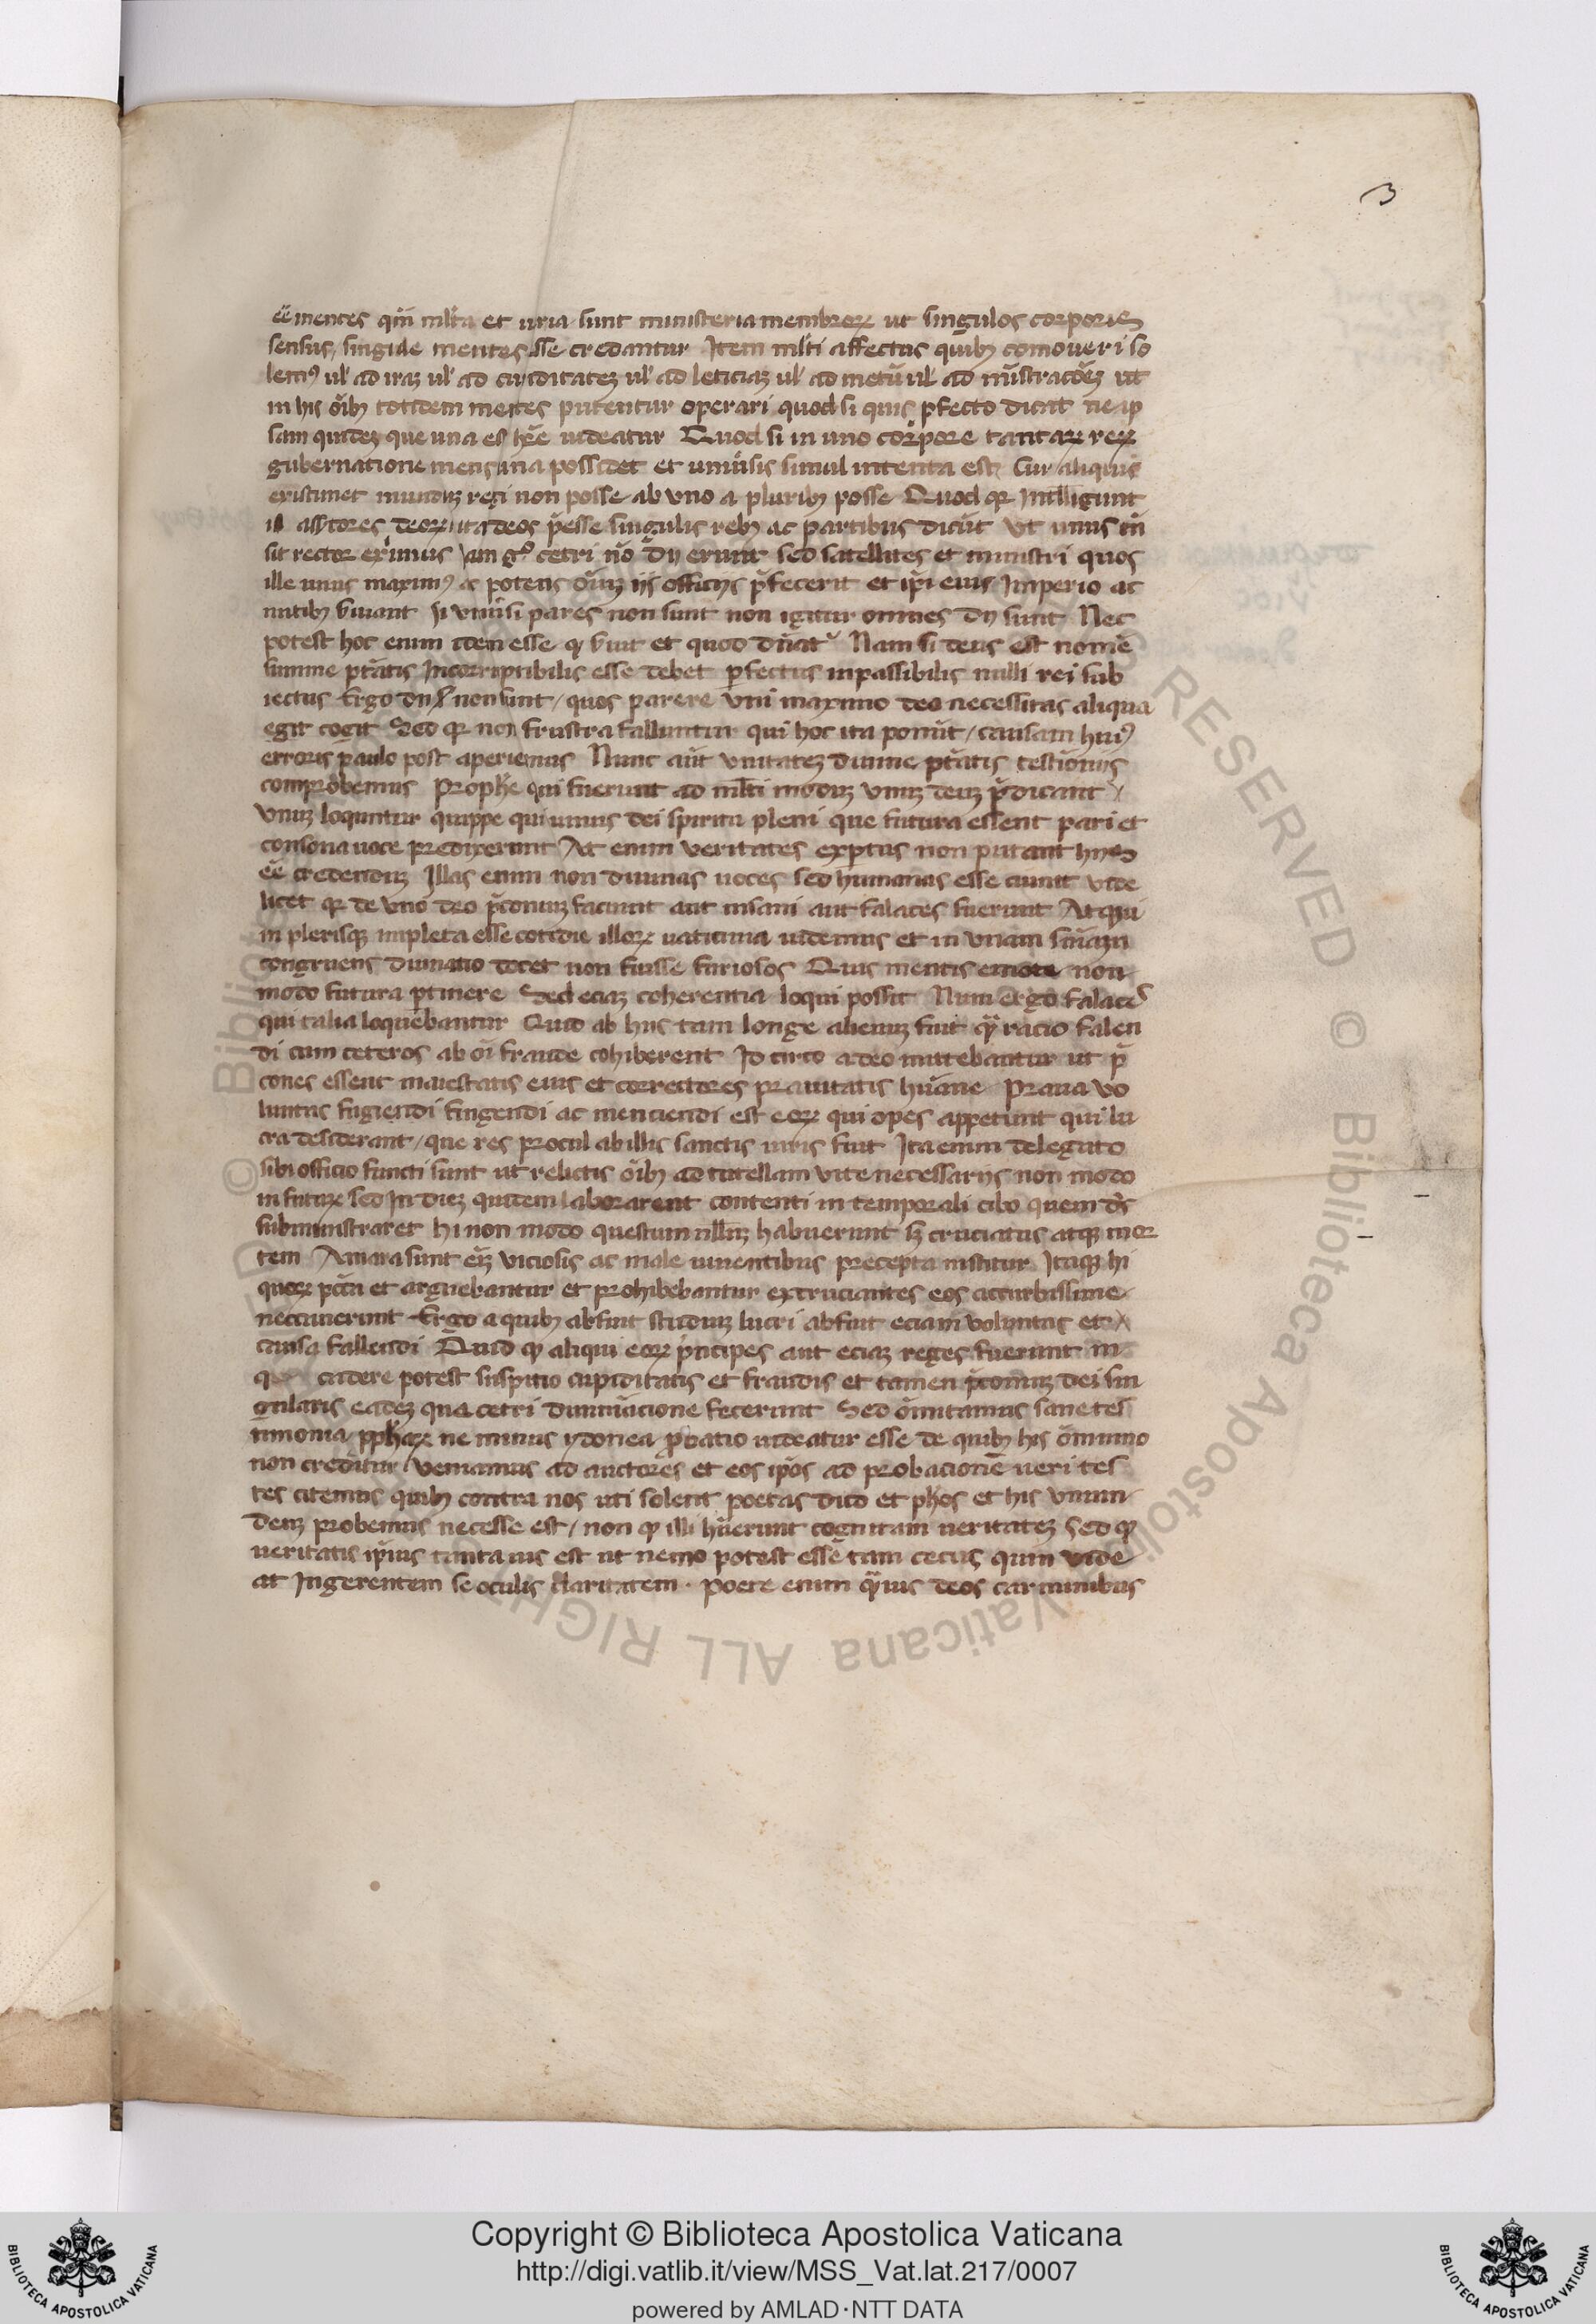 3
ēē mentes qm̄ ml'ta et uria sunt ministeria membrorꝝ ut singulos corporis
sensus, singule mentes esse credantur Item ml'ti affectus quibꝫ comoueri so
lemꝰ ul' ad iraꝫ ul' ad cupiditateꝫ ul' ad leticiaꝫ ul' ad metū ul' ad
in his oībꝫ totidem mentes putentur operari quod si quis pfecto dicat ne ip
sam quideꝫ que una est hr̄e uideatur Quod si in uno corpore tantarꝝ rerꝝ
gubernatione mens una possidet et uniūsis simul intenta est Cur aliquis
existimet munduꝫ regi non posse ab vno a pluribꝫ posse Quod qꝫ Intelligunt
isti asstores deorꝝ ita deos p̄esse singulis rebꝫ ac partibus dicūt Vt unus tn̄
sit rector eximius iam gͦ cetri nō dij erunt sed satellites et ministri quos
ille unus maximꝰ ac potens oīuꝫ iis officijs p̄fecerit et ip̄i eius Imperio ac
nutibꝫ s̄uiant si vniūsi pares non sunt non igitur omnes dij sunt Nec
potest hoc enim idem esse qꝫ s̄uit et quod dn̄atᷣ Nam si deus est nomē
summe ptātis Incorruptibilis esse debet pfectus inpassibilis nulli rei sub
iectus Ergo dij non sunt / quos parere vni maximo deo necessitas aliqua
egit cogit Sed qꝫ non frustra falluntur qui hoc ita ponūt / causam huiꝰ
erroris paulo post aperiemus Nunc aūt vnitateꝫ diuine ptātis testīonijs
comprobemus Prophē qui fuerunt ad ml'ti moduꝫ vnuꝫ deuꝫ p̄dicant
vnuꝫ loquntur quippe qui unius dei spiritu pleni que futura essent pari et
consona uoce predixerunt At enim veritates exptus non putant hijs
ēē credenduꝫ Illas enim non diuinas uoces sed humanas esse aiunt vide
licet qꝫ de vno deo p̄coniuꝫ faciunt aut insani aut falaces fuerunt Atqui
in plerisqꝫ impleta esse cotidie illorꝝ uaticinia uidemus et in vnam sn̄iam
congruens diuinatio docet non fuisse furiosos Quis mentis emote non
modo futura ptinere Sed eciaꝫ coherentia loqui possit Num ergo falaces
qui talia loquebantur Quid ab hijs tam longe alienuꝫ fuit qͣ racio falen
di cum ceteros ab oī fraude cohiberent Id circo a deo mittebantur ut p̄
cones essent maiestatis eius et correctores prauitatis hūane Praua vo
luntas fugiendi fingendi ac menciendi est eorꝝ qui opes appetunt qui lu
cra desiderant / que res procul ab illis sanctis uiris fuit Ita enim delegato
sibi officio functi sunt ut relictis oībꝫ ad tutellam vite necessarijs non modo
in futurꝝ sed In dieꝫ quidem laborarent contenti in temporali cibo quem ds̄
subministraret hi non modo questum nll'uꝫ habuerunt sꝫ cruciatus atqꝫ mor
tem Amara sunt eīꝫ viciosis ac male uiuentibus precepta Itaqꝫ hi
quorꝝ pctā et arguebantur et prohibebantur extruciantes eos accerbissime
neccauerunt Ergo a quibꝫ abfuit studiuꝫ lucri abfuit eciam voluntas et
causa fallendi Quid qꝫ aliqui eorꝝ p̄ncipes aut eciaꝫ reges fuerunt in
q cadere potest suspitio cupiditatis et fraudis et tamen p̄coniuꝫ dei sin
gularis eadeꝫ qua cetri diuinacione fecerunt Sed omittamus sane tes
timonia ppharꝝ ne minus ydonea probatio uideatur esse de quibꝫ his omnino
non creditur Veniamus ad auctores et eos ip̄os ad probacionē ueri tes
tes citemus quibꝫ contra nos uti solent poetas dico et phos et his vnum
deuꝫ probemus necesse est / non qꝫ illi hūerunt cognitam ueritateꝫ Sed qꝫ
ueritatis ip̄ius tanta uis est ut nemo potest esse tam cecus quin vide
at Ingerentem se oculis claritatem · Poete enim qͣuis deos carminibus
Copyright © Biblioteca Apostolica Vaticana
http://digi.vatlib.it/view/MSS_Vat.lat.217/0007
powered by AMLAD·NTT DATA
BIBLIOTECA APOSTOLICA VATICANA
BIBLIOTECA APOSTOLICA VATICANA
© Biblioteca Apostolica Vaticana ALL RIGHTS RESERVED